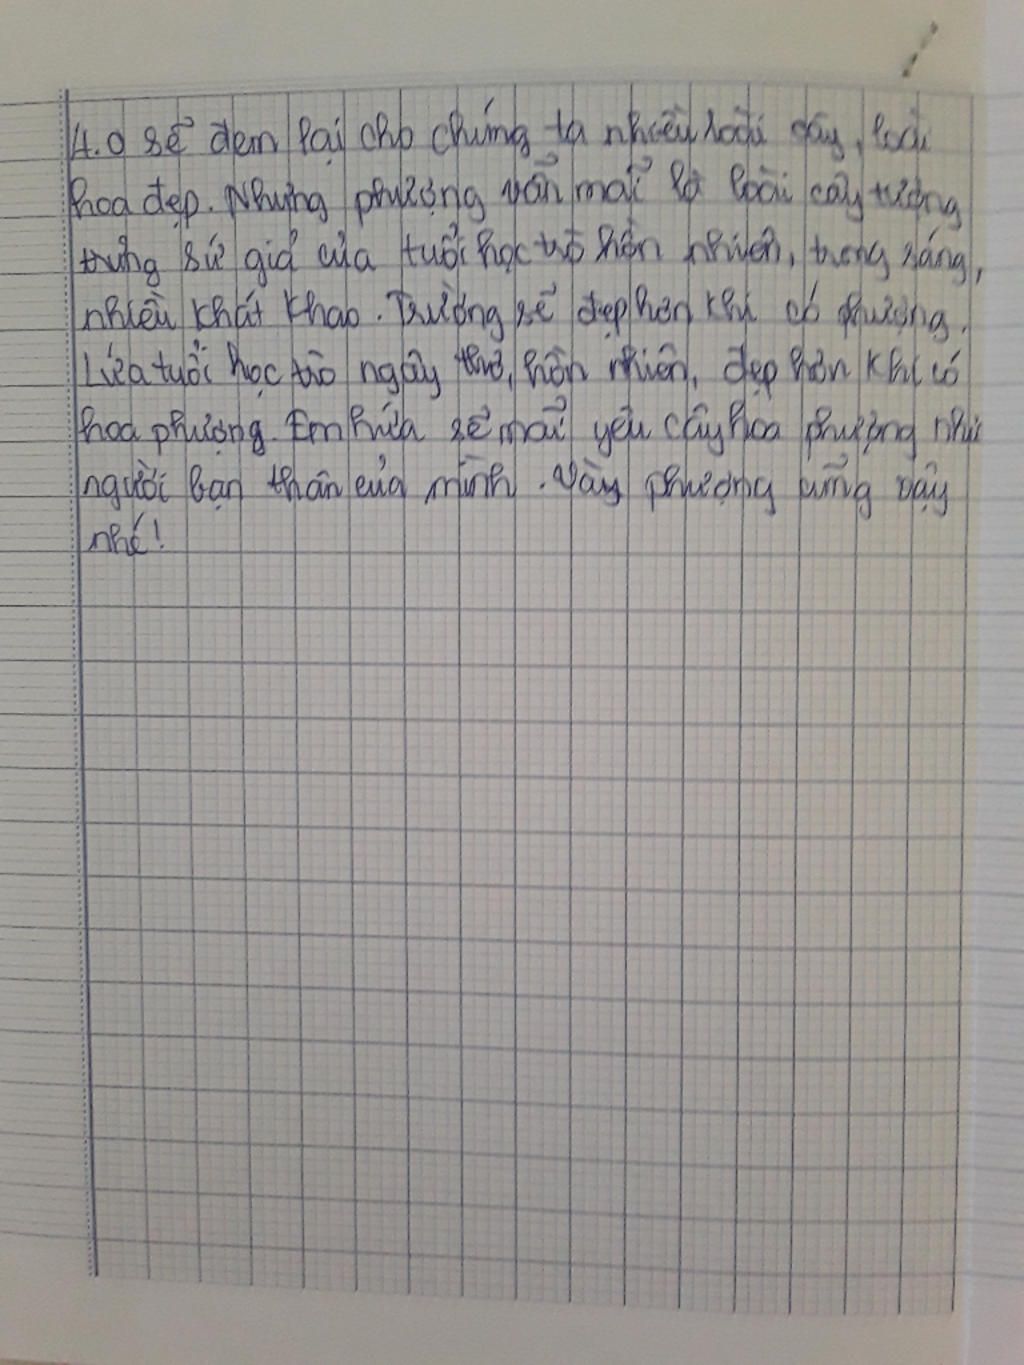 4.0 sẽ đem lại cho chúng ta nhiều loài cây, loài
hoa đẹp. Nhưng phượng vẫn mãi là loài cây tượng
trưng sứ giả của tuổi học trò hồn nhiên, trong sáng,
nhiều khát khao. Trường sẽ đẹp hơn khi có phượng.
Lứa tuổi học trò ngây thơ, hồn nhiên, đẹp hơn khi có
hoa phượng. Em hứa sẽ mãi yêu cây hoa phượng như
người bạn thân của mình. Vậy phượng cũng vậy
nhé!